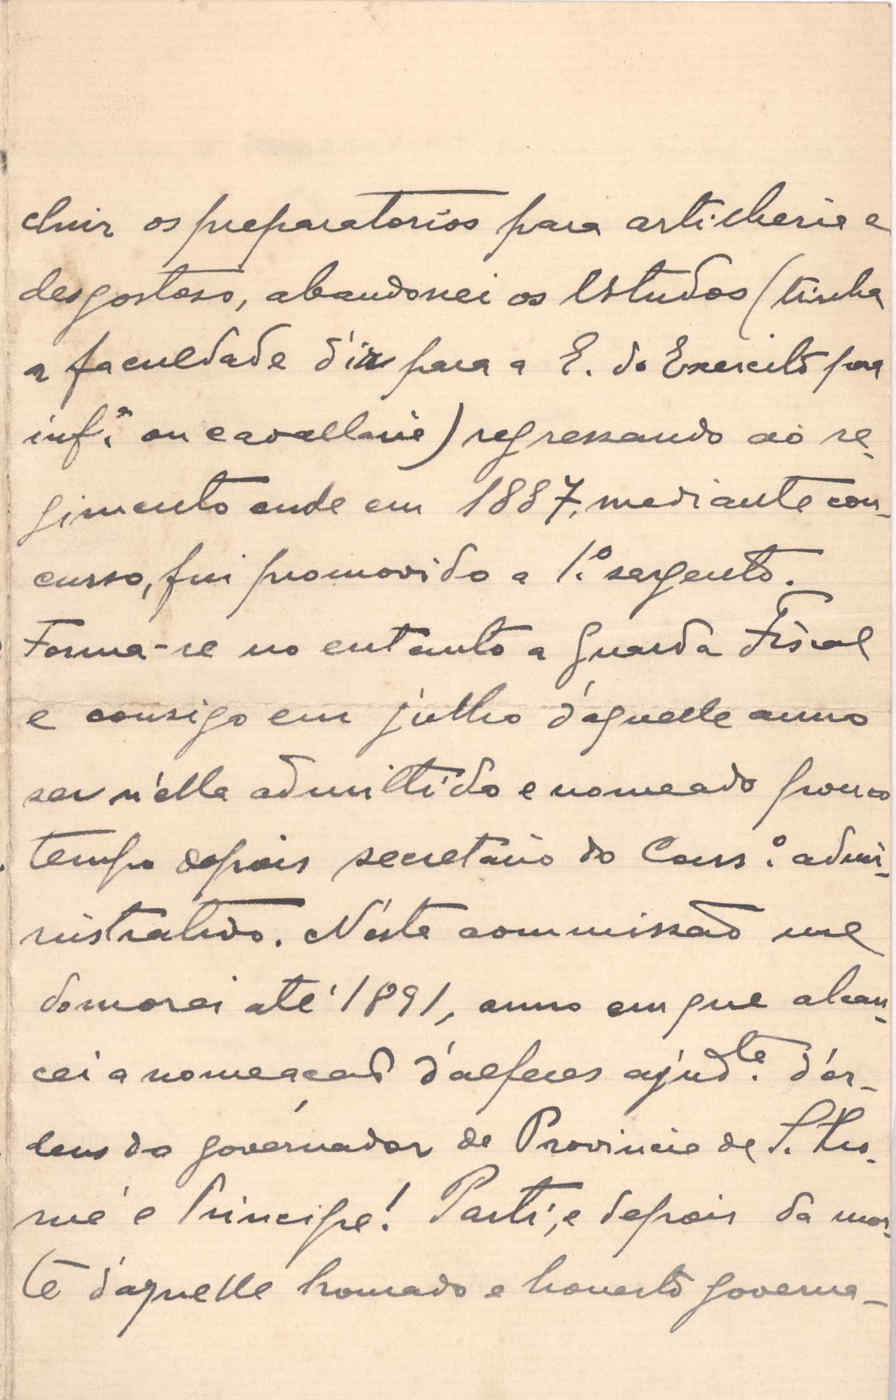 cluir os preparatorios para artilheria e
desgostoso, abandonei os Estudos (tinha
a faculdade d'ir para a E. do Exercito para
inf.ª ou cavallaria) regressando ao re-
gimento onde em 1887, mediante con-
curso, fui promovido a 1.º sargento.
Forma-se no entanto a Guarda Fiscal
e consigo em julho d'aquelle anno
ser n'ella admittido e nomeado pouco
tempo depois secretario do Cons.º admi-
nistrativo. N'esta commissão me
demorei até 1891, anno em que alcan-
cei a nomeação d'alferes ajud.te d'or-
dens do governador da Provincia de S. Tho-
mé e Principe! Parti, e depois da mor-
te d'aquelle honrado e honesto governa-